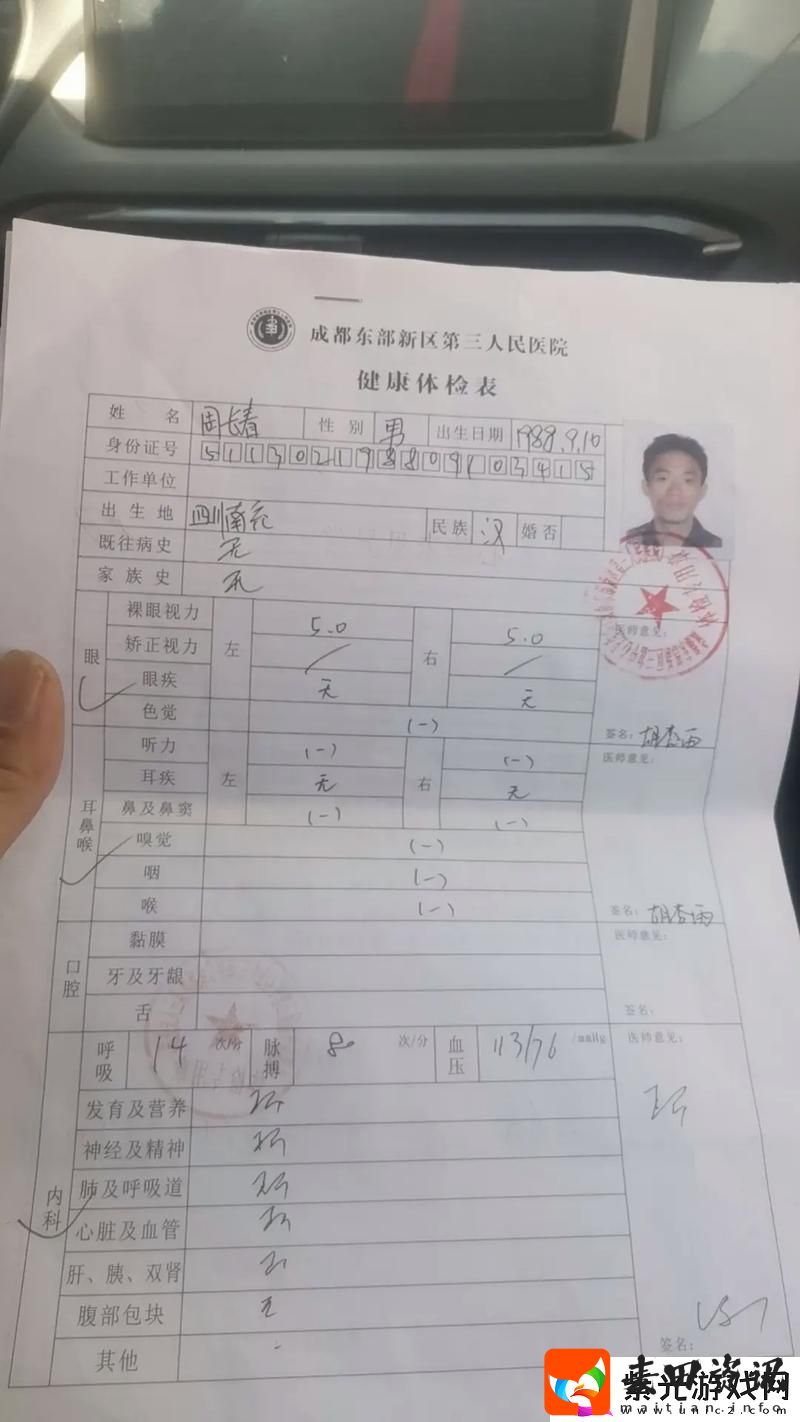 成都东部新区第三人民医院
健康体检表
姓名 周长春 性别 男 出生日期 1988.9.10
身份证号 511302198809103415
工作单位
出生地 四川南充 民族 汉 婚否
既往病史 无
家族史 无
眼 裸眼视力 左 5.0 右 5.0 医师意见:
矫正视力 / /
眼疾 无 无
色觉 (-) 签名: 胡杏雨
耳鼻喉 听力 左 (-) 右 (-) 医师意见:
耳疾 无 无
鼻及鼻窦 (-) (-)
嗅觉 (-)
咽 (-)
喉 (-) 签名: 胡杏雨
口腔 黏膜 医师意见:
牙及牙龈
舌 签名:
内科 呼吸 14 次/分 脉搏 80 次/分 血压 113/76 /mmHg 医师意见:
发育及营养 正常
神经及精神 正常
肺及呼吸道 正常
心脏及血管 正常
肝、胰、双肾
腹部包块 无
其他 -
签名:
紫光游戏网
www.uncz2.com
maitian.info